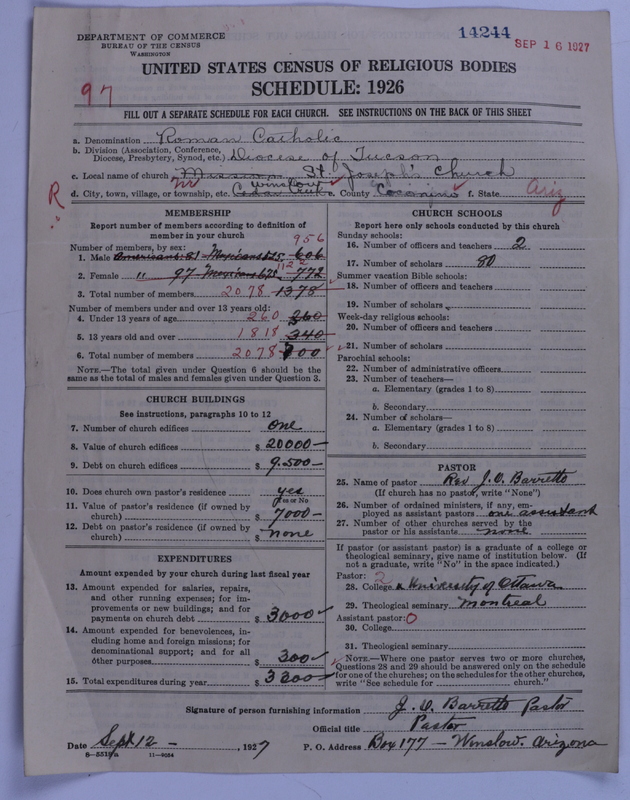 DEPARTMENT OF COMMERCE
BUREAU OF THE CENSUS
WASHINGTON
14244
SEP 16 1927
UNITED STATES CENSUS OF RELIGIOUS BODIES
SCHEDULE: 1926
97
FILL OUT A SEPARATE SCHEDULE FOR EACH CHURCH. SEE INSTRUCTIONS ON THE BACK OF THIS SHEET
a. Denomination Roman Catholic
b. Division (Association, Conference, Diocese, Presbytery, Synod, etc.) Diocese of Tucson
c. Local name of church Mission St. Joseph's Church
d. City, town, village, or township, etc. Winslow e. County Coconino f. State Ariz
R
MEMBERSHIP
Report number of members according to definition of
member in your church
Number of members, by sex: 956
1. Male Americans 81 Mexicans 525 606
1122
2. Female " 97 Mexicans 675 772
3. Total number of members 2078 1378
Number of members under and over 13 years old:
4. Under 13 years of age 260 260
5. 13 years old and over 1818 340
6. Total number of members 2078 00
NOTE.—The total given under Question 6 should be the
same as the total of males and females given under Question 3.
CHURCH BUILDINGS
See instructions, paragraphs 10 to 12
7. Number of church edifices one
8. Value of church edifices $ 20000—
9. Debt on church edifices $ 9.500—
10. Does church own pastor's residence yes
Yes or No
11. Value of pastor's residence (if owned by
church) $ 7000—
12. Debt on pastor's residence (if owned by
church) $ none
EXPENDITURES
Amount expended by your church during last fiscal year
13. Amount expended for salaries, repairs,
and other running expenses; for im-
provements or new buildings; and for
payments on church debt $ 3000
14. Amount expended for benevolences, in-
cluding home and foreign missions; for
denominational support; and for all
other purposes $ 300
15. Total expenditures during year $ 3300
CHURCH SCHOOLS
Report here only schools conducted by this church
Sunday schools:
16. Number of officers and teachers 2
17. Number of scholars 80
Summer vacation Bible schools:
18. Number of officers and teachers
19. Number of scholars
Week-day religious schools:
20. Number of officers and teachers
21. Number of scholars
Parochial schools:
22. Number of administrative officers
23. Number of teachers—
a. Elementary (grades 1 to 8)
b. Secondary
24. Number of scholars—
a. Elementary (grades 1 to 8)
b. Secondary
PASTOR
25. Name of pastor Rev J. O. Barrette
(If church has no pastor, write "None")
26. Number of ordained ministers, if any, em-
ployed as assistant pastors one assistant
27. Number of other churches served by the
pastor or his assistants none
If pastor (or assistant pastor) is a graduate of a college or
theological seminary, give name of institution below. (If
not a graduate, write "No" in the space indicated.)
Pastor: 2
28. College University of Ottawa
29. Theological seminary Montreal
Assistant pastor: 0
30. College
31. Theological seminary
NOTE.—Where one pastor serves two or more churches,
Questions 28 and 29 should be answered only on the schedule
for one of the churches; on the schedules for the other churches,
write "See schedule for church."
Signature of person furnishing information J. O. Barrette Pastor
Official title Pastor
Date Sept 12 —, 1927 P. O. Address Box 177 — Winslow. Arizona
8—5519a 11—9034